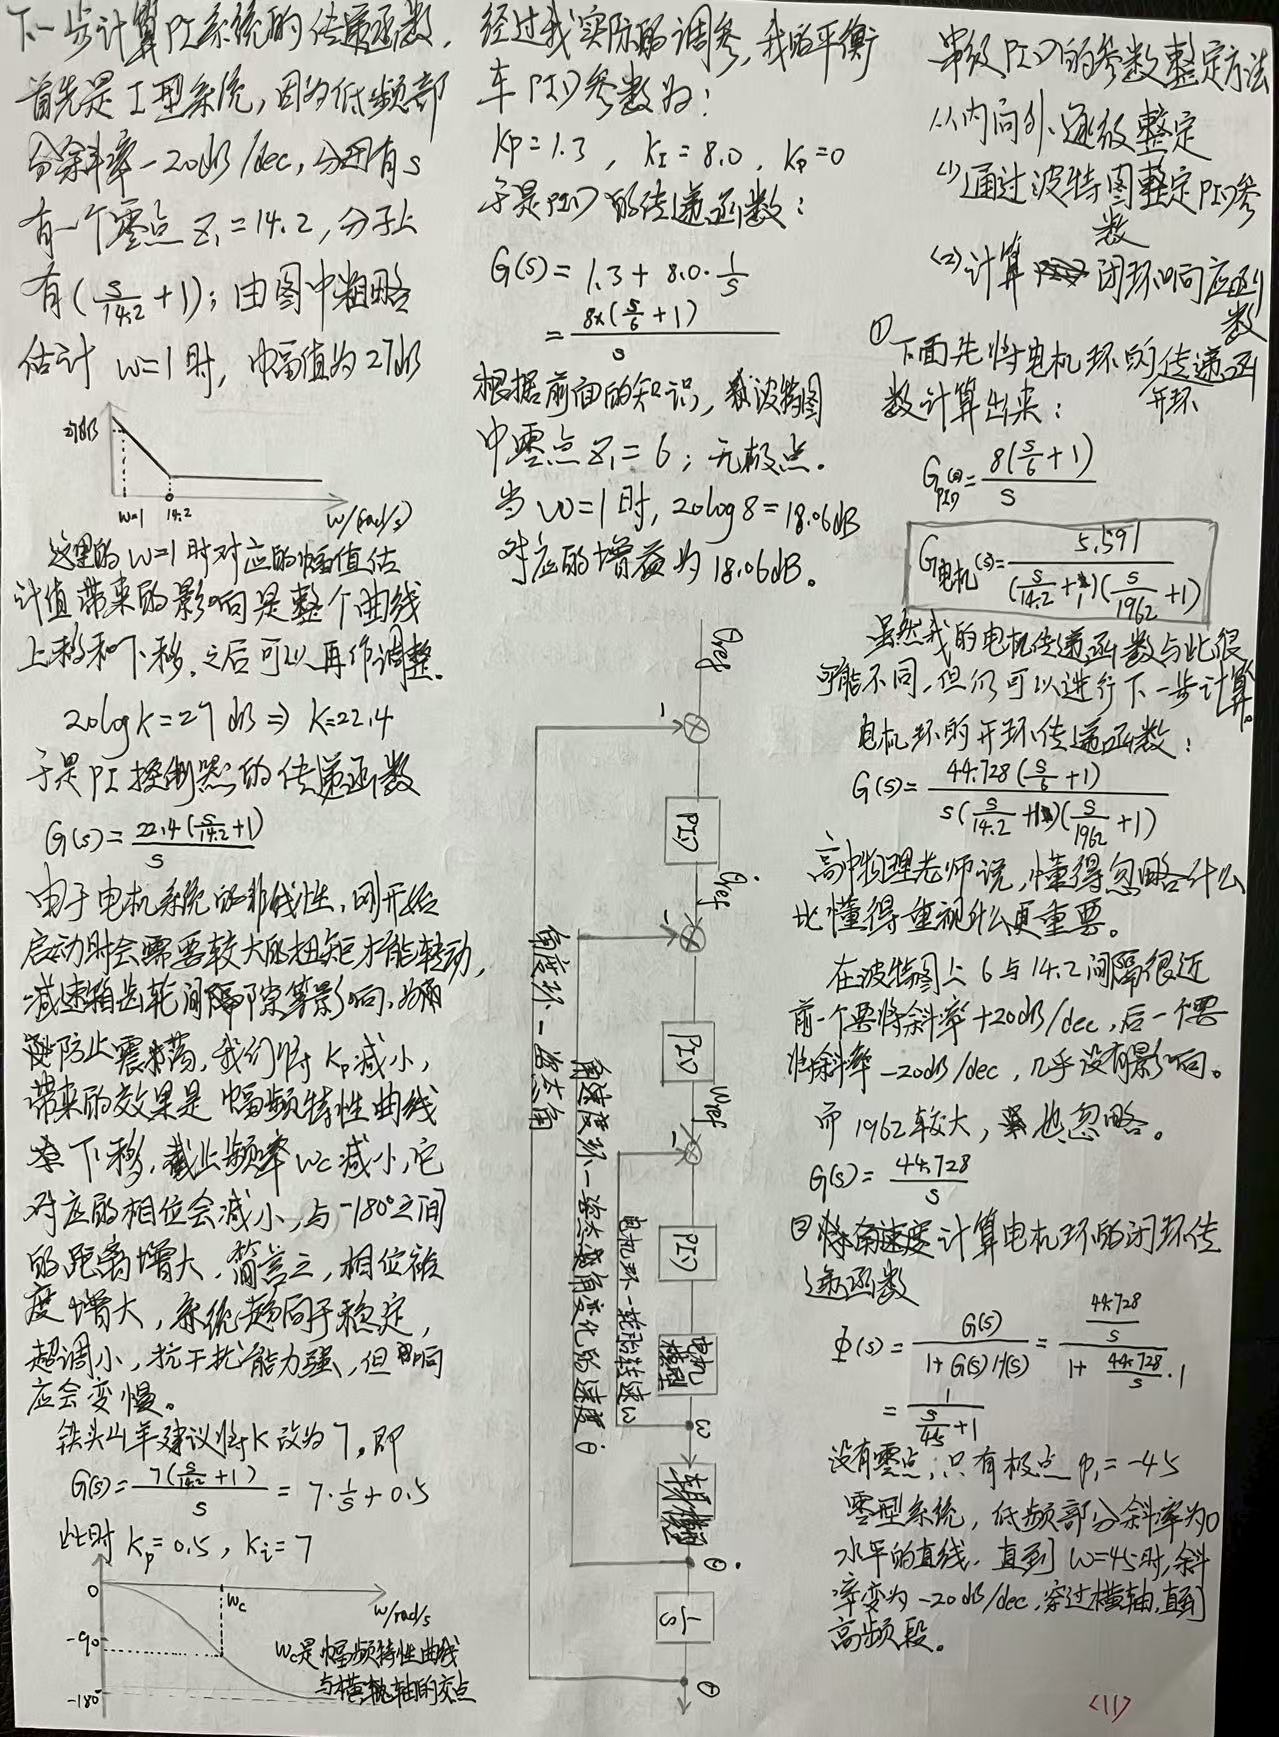 下一步计算PI系统的传递函数,
首先是I型系统,因为低频部
分斜率-20dB/dec,分母有s
有一个零点 Z₁=14.2,分子上
有(s/14.2+1);由图中粗略
估计 w=1时,幅值为27dB
27dB
w=1 14.2 w/(rad/s)
这里的w=1时对应的幅值估
计值带来的影响是整个曲线
上移和下移,之后可以再作调整。
20logk=27dB⇒K=22.4
于是PI控制器的传递函数
G(s)=22.4(s/14.2+1)/s
由于电机系统的非线性,刚开始
启动时会需要较大的扭矩才能转动,
减速箱齿轮间隔隙等影响,
防止震荡,我们将Kp减小,
带来的效果是幅频特性曲线
下移,截止频率wc减小,它
对应的相位会减小,与-180°之间
的距离增大,简言之,相位裕
度增大,系统趋向于稳定,
超调小,抗干扰能力强,但响
应会变慢。
铁头山羊建议将K改为7,即
G(s)=7(s/14.2+1)/s=7·1/s+0.5
此时 Kp=0.5,Ki=7
0 wc w/rad/s
-90
-180
wc是幅频特性曲线
与横轴的交点
经过我实际的调参,我的平衡
车PID参数为:
Kp=1.3,KI=8.0,KD=0
于是PID的传递函数:
G(s)=1.3+8.0·1/s
=8×(s/6+1)/s
根据前面的知识,波特图
中零点Z₁=6;无极点。
当w=1时,20log8=18.06dB
对应的增益为18.06dB。
θref
-
PID
θ̇ref
-
PID
wref
-
PID
电机模型
w
车身模型
θ̇
1/s
θ
角度环—姿态角
角速度环—姿态角变化的速度θ̇
电机环—轮胎转速w
串级PID的参数整定方法
从内向外,逐级整定
(1)通过波特图整定PID参
数
(2)计算闭环响应函
数
①下面先将电机环的传递函
开环
数计算出来:
GPID(s)=8(s/6+1)/s
G电机(s)=5.591/(s/14.2+1)(s/1962+1)
虽然我的电机传递函数与此很
可能不同,但仍可以进行下一步计算。
电机环的开环传递函数:
G(s)=44.728(s/6+1)/s(s/14.2+1)(s/1962+1)
高中物理老师说,懂得忽略什么
比懂得重视什么更重要。
在波特图上6与14.2间隔很近
前一个要将斜率+20dB/dec,后一个要
将斜率-20dB/dec,几乎没有影响。
而1962较大,也忽略。
G(s)=44.728/s
②计算电机环的闭环传
递函数
Φ(s)=G(s)/1+G(s)H(s)=44.728/s/1+44.728/s·1
=1/s/45+1
没有零点,只有极点p₁=-45
零型系统,低频部分斜率为0
水平的直线,直到w=45时,斜
率变为-20dB/dec,穿过横轴,直到
高频段。
<11>